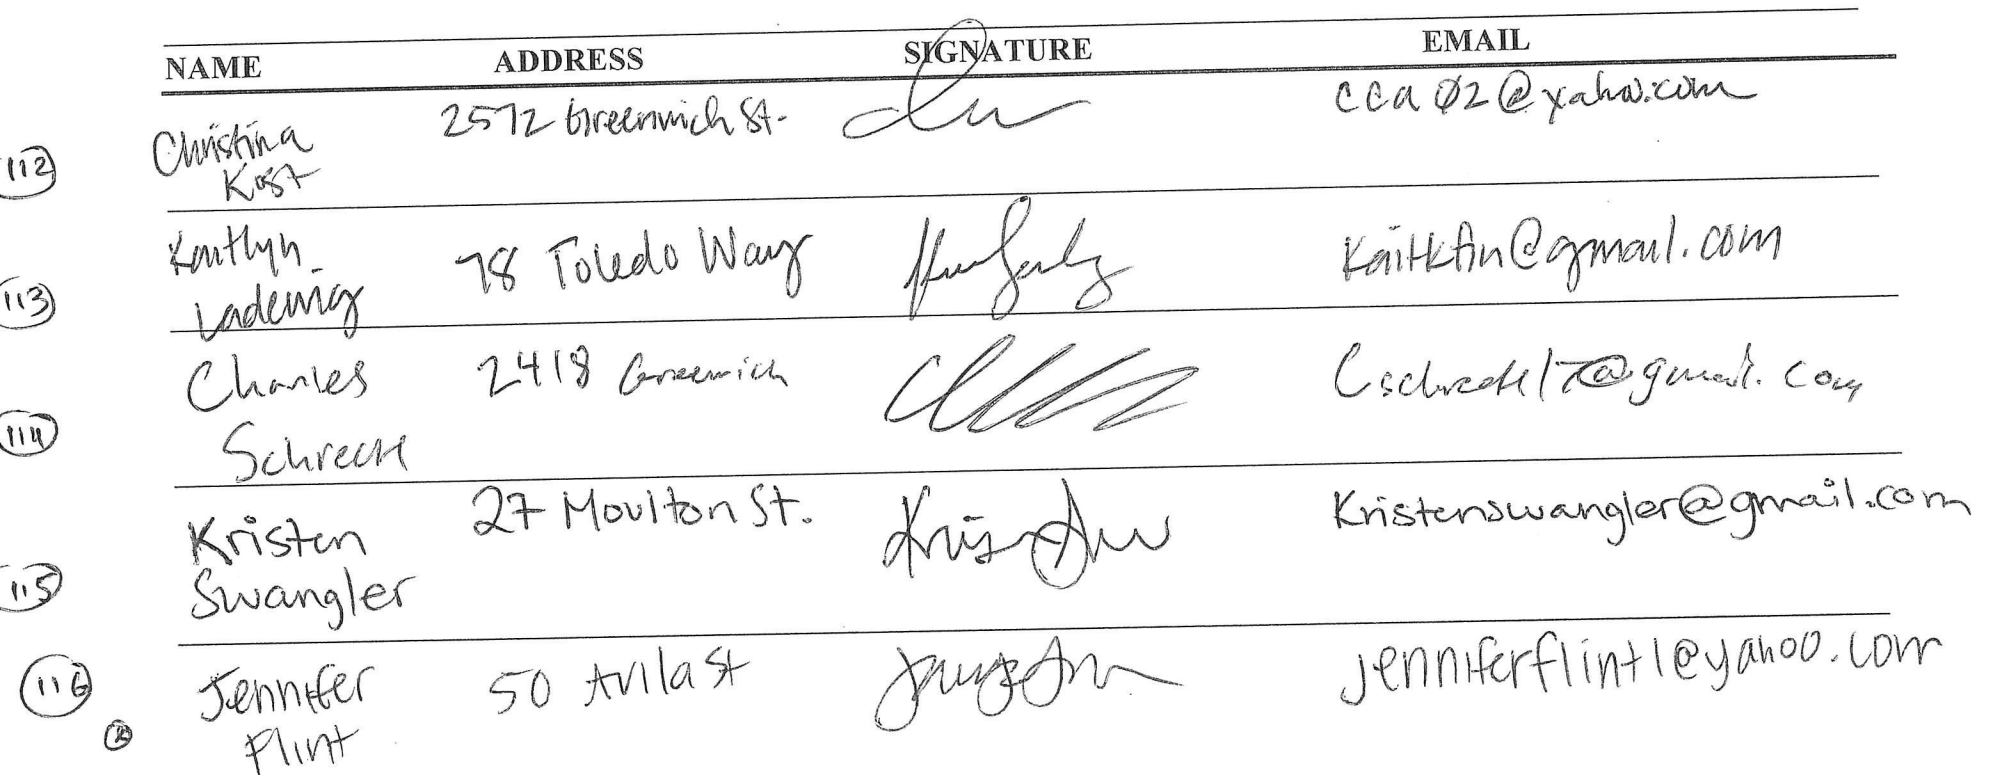 NAME ADDRESS SIGNATURE EMAIL
112 Christina Kost 2572 Greenwich St. cca02@yahoo.com
113 Kaitlyn Ladewig 78 Toledo Way kaitkfin@gmail.com
114 Charles Schreck 2418 Greenwich
115 Kristen Swangler 27 Moulton St. Kristenswangler@gmail.com
116 Jennifer Flint 50 Avila St jenniferflint1@yahoo.com